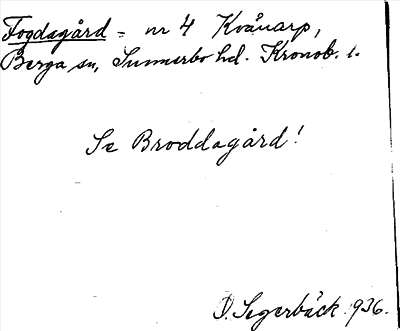 Fogdagård = nr 4 Kvånarp,
Berga sn, Sunnerbo hd. Kronob. l.
Se Broddagård!
D. Segerbäck 1936.